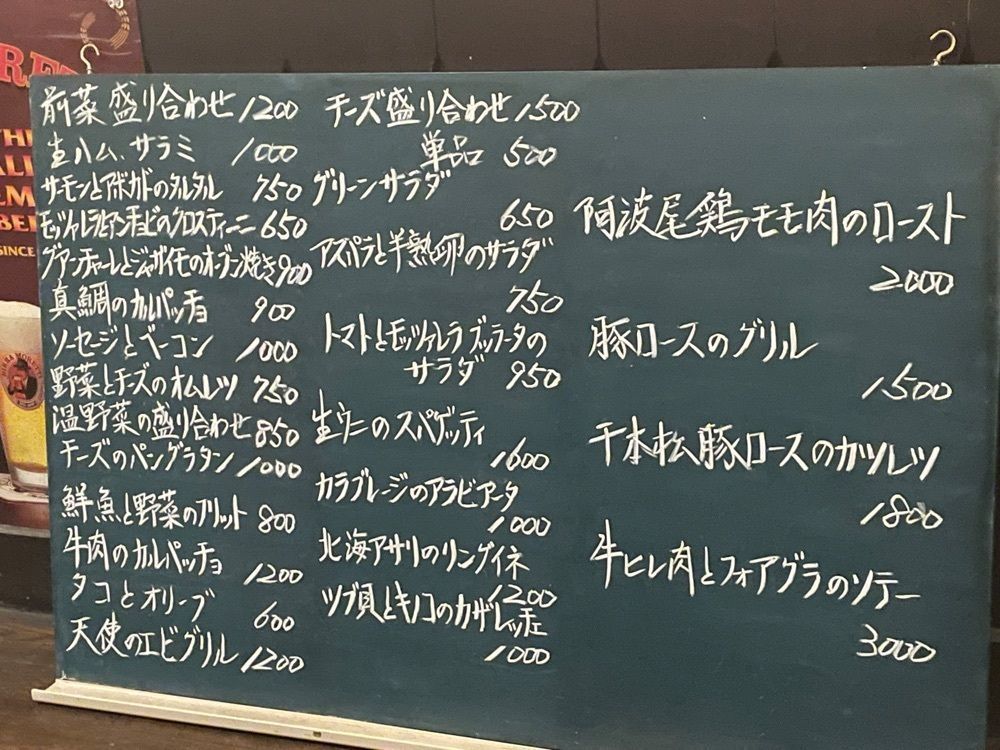 前菜盛り合わせ 1200
生ハム、サラミ 1000
サーモンとアボカドのタルタル 750
モッツァレラとアンチョビのクロスティーニ 650
グアンチャーレとジャガイモのオーブン焼き 900
真鯛のカルパッチョ 900
ソーセージとベーコン 1000
野菜とチーズのオムレツ 750
温野菜の盛り合わせ 850
チーズのパングラタン 1000
鮮魚と野菜のフリット 800
牛肉のカルパッチョ
1200
タコとオリーブ
600
天使のエビグリル 1200
チーズ盛り合わせ 1500
単品 500
グリーンサラダ
650
アスパラと半熟卵のサラダ
750
トマトとモッツァレラ ブッラータの
サラダ 950
生ウニのスパゲッティ
1600
カラブレージのアラビアータ
1000
北海アサリのリングイネ
1200
ツブ貝とキノコのカザレッチェ
1000
阿波尾鶏モモ肉のロースト
2000
豚ロースのグリル
1500
千本松豚ロースのカツレツ
1800
牛ヒレ肉とフォアグラのソテー
3000
SINCE